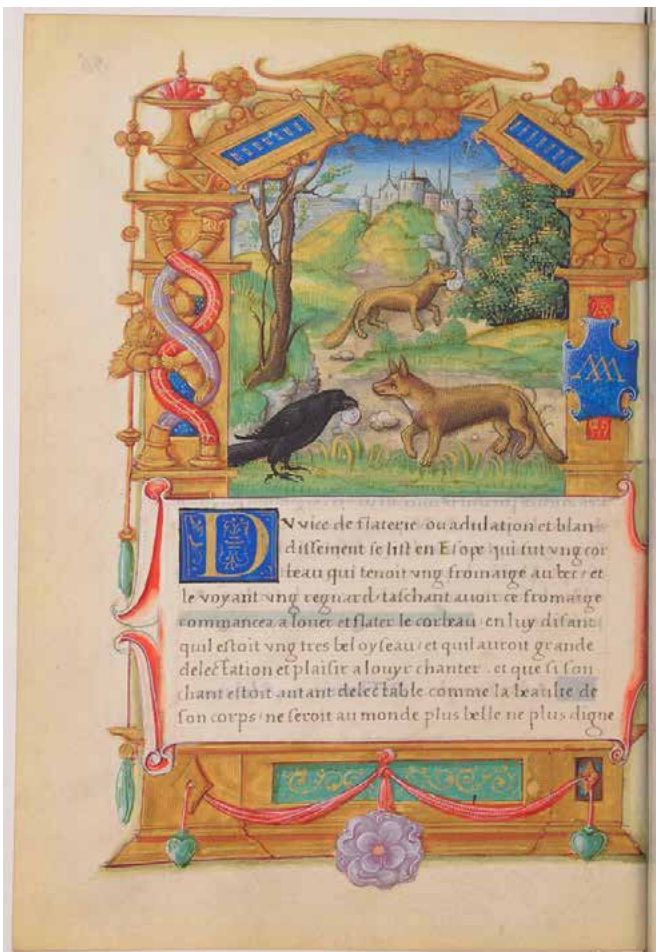 DV vice de flaterie ou adulation et blan
dissement se list en Esope qui fut vng cor
beau qui tenoit vng fromaige au bec / et
le voyant vng regnard / taschant auoir ce fromaige
commencea a louer et flater le corbeau / en luy disant
quil estoit vng tres bel oyseau / et quil auroit grande
delectation et plaisir a louyr chanter . et que si son
chant estoit autant delectable comme la beaulte de
son corps / ne seroit au monde plus belle ne plus digne